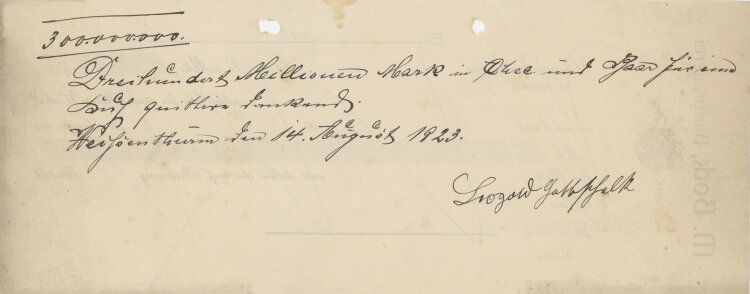 300.000.000.
Dreihundert Millionen Mark in Chec und Baar für eine
Kuh quittire dankend.
Weißenthurm den 14. August 1923.
Leopold Gottschalk